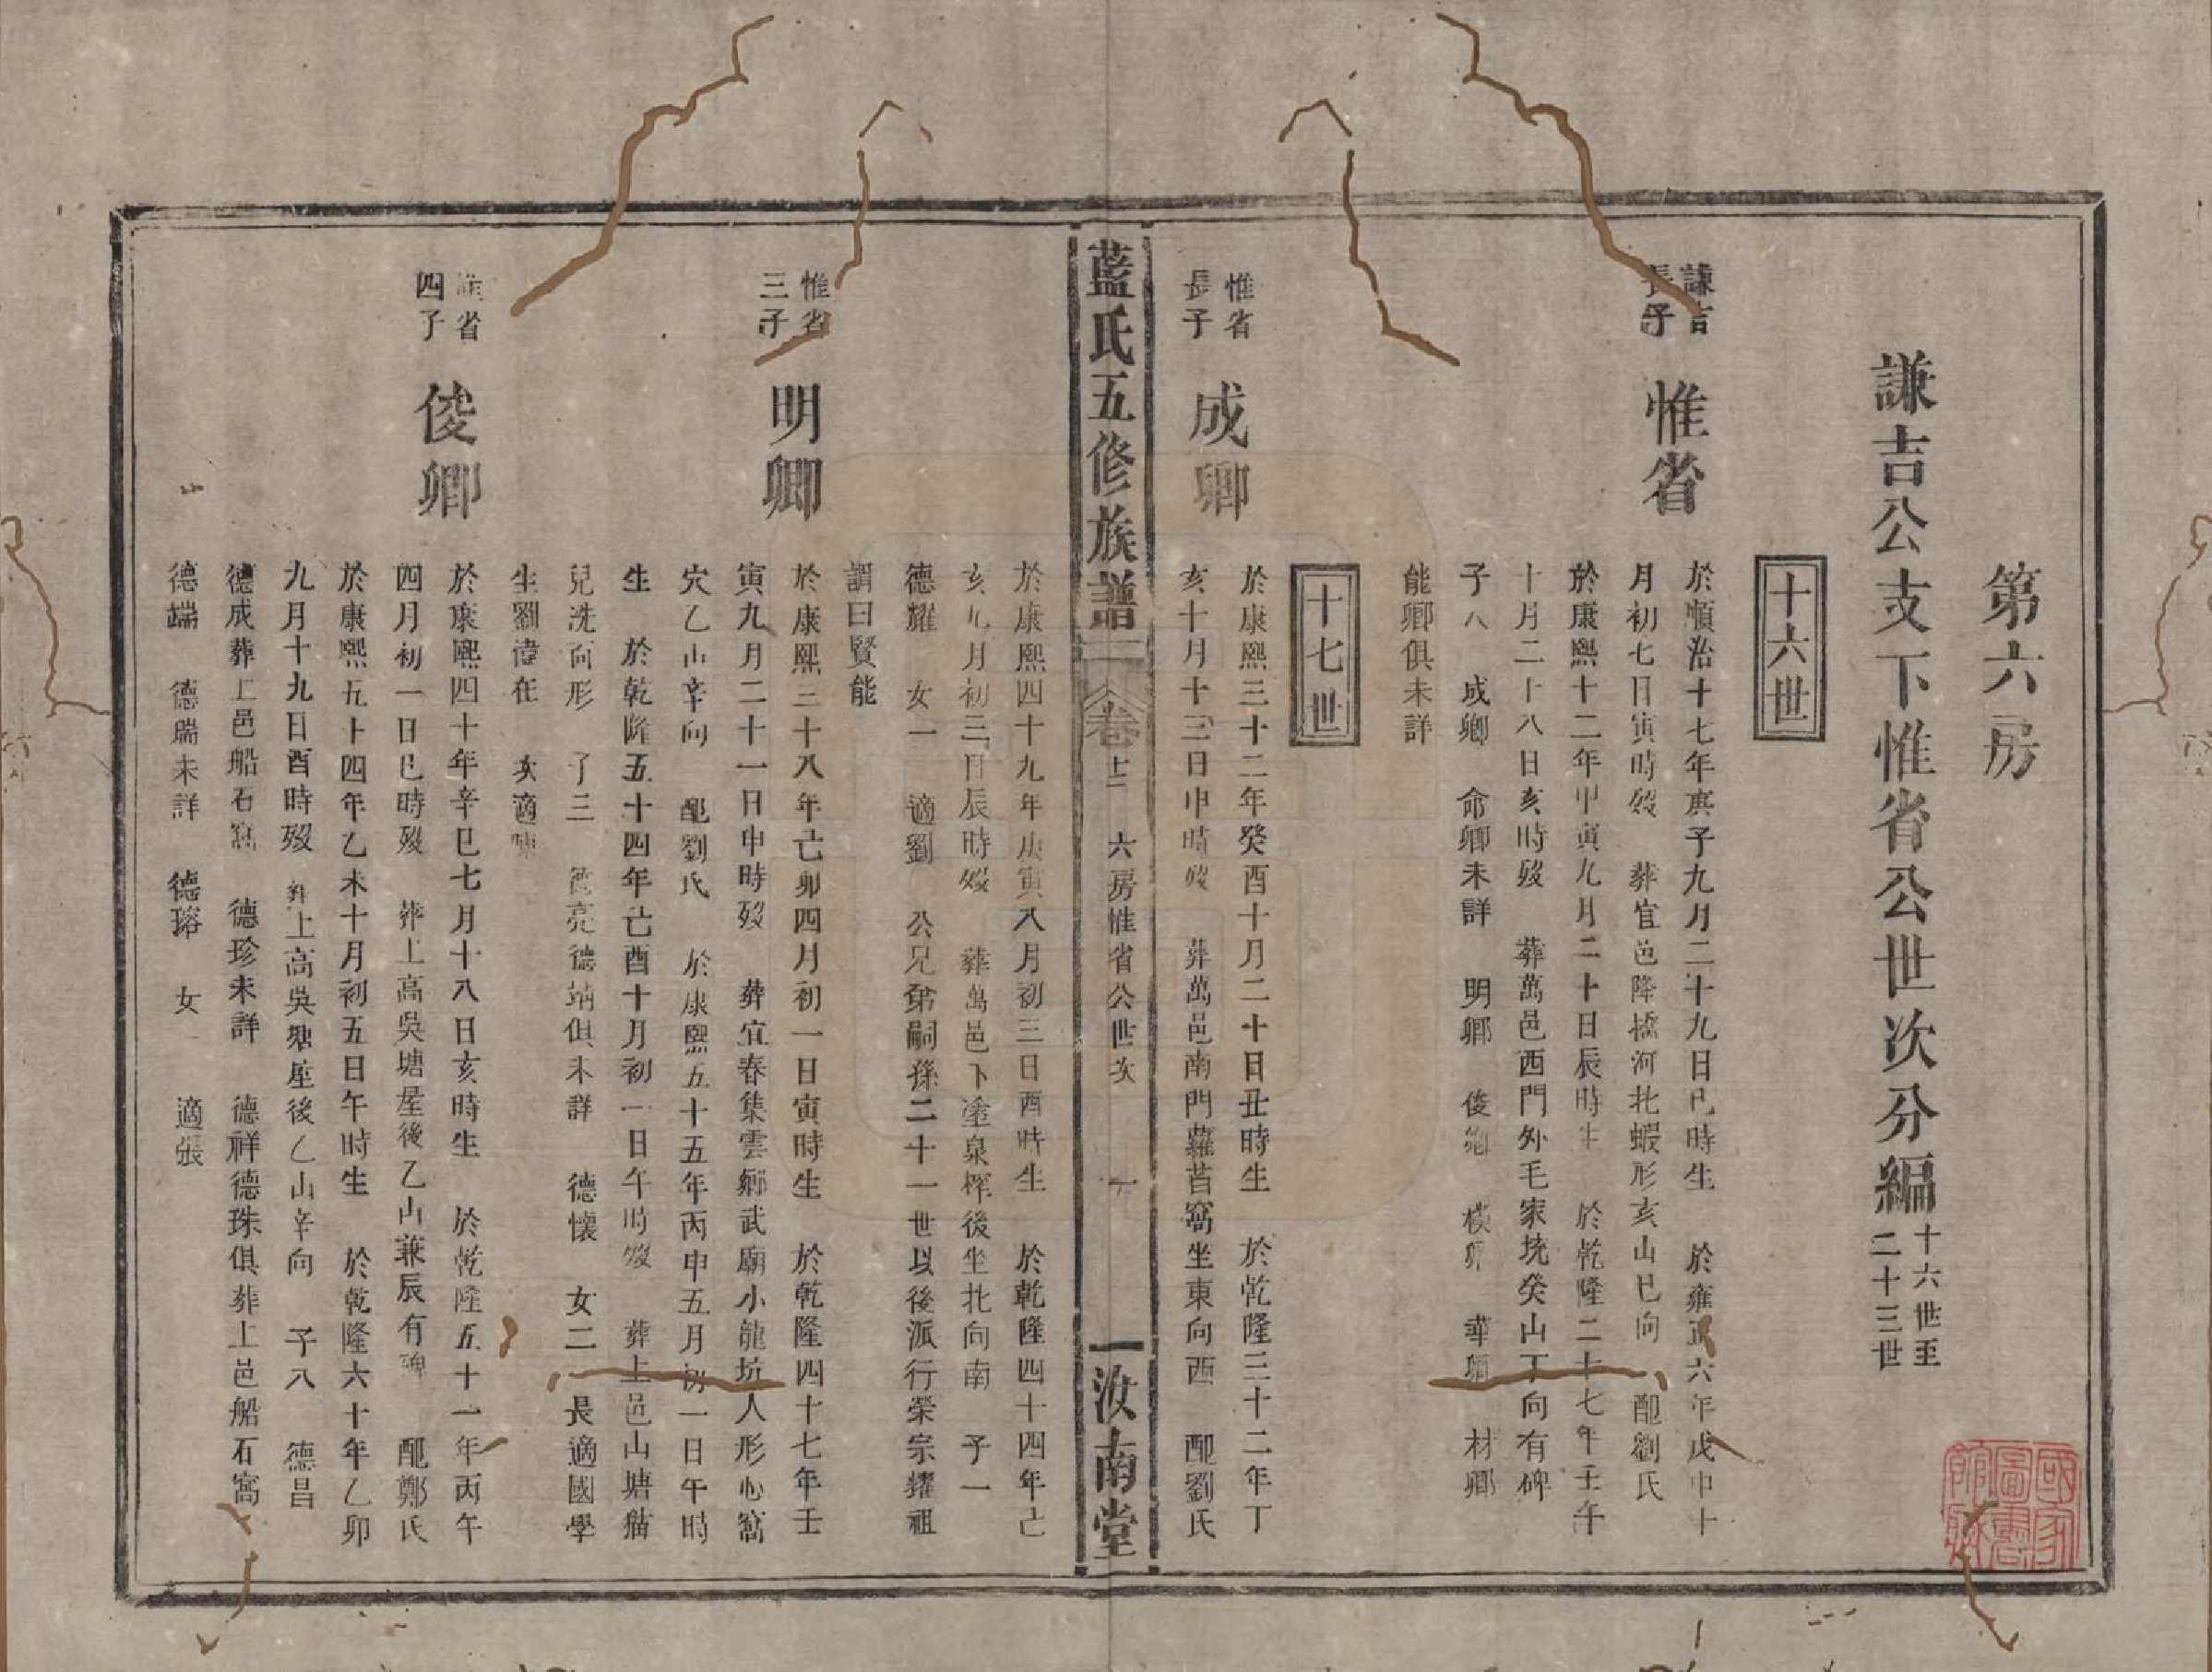 第六房
謙吉公支下惟省公世次分編
十六世至
二十三世
十六世
謙吉
長子
惟省
於順治十七年庚子九月二十九日巳時生 於雍正六年戊申十
月初七日寅時歿 葬宜邑降橋河北蝦形亥山巳向 配劉氏
於康熙十二年甲寅九月二十日辰時生 於乾隆二十七年壬午
十月二十八日亥時歿 葬萬邑西門外毛家垅癸山丁向有碑
子八 成卿 命卿未詳 明卿 俊卿 模卿 華卿 材卿
能卿俱未詳
十七世
惟省
長子
成卿
於康熙三十二年癸酉十月二十日丑時生 於乾隆三十二年丁
亥十月十三日申時歿 葬萬邑南門蘿苜窩坐東向西 配劉氏
藍氏五修族譜
卷十二 六房惟省公世次 一
汝南堂
於康熙四十九年庚寅八月初三日酉時生 於乾隆四十四年己
亥九月初三日辰時歿 葬萬邑下塗泉後坐北向南 子一
德耀 女一 適劉 公兄弟嗣孫二十一世以後派行榮宗耀祖
謂曰賢能
惟省
三子
明卿
於康熙三十八年己卯四月初一日寅時生 於乾隆四十七年壬
寅九月二十一日申時歿 葬宜春集雲鄉武廟小龍坑人形心窩
穴乙山辛向 配劉氏 於康熙五十五年丙申五月初一日午時
生 於乾隆五十四年己酉十月初一日午時歿 葬上邑山塘貓
兒洗向形 子三 德亮德靖俱未詳 德懷 女二 長適國學
生劉偉在 次適陳
惟省
四子
俊卿
於康熙四十年辛巳七月十八日亥時生 於乾隆五十一年丙午
四月初一日巳時歿 葬上高吳塘屋後乙山兼辰有碑 配鄭氏
於康熙五十四年乙未十月初五日午時生 於乾隆六十年乙卯
九月十九日酉時歿 葬上高吳塘屋後乙山辛向 子八 德昌
德成葬上邑船石窩 德珍未詳 德祥德珠俱葬上邑船石窩
德端 德瑞未詳 德瑢 女一 適張